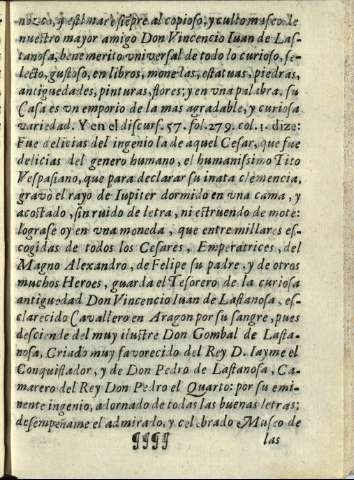 nozco, y estimarè siẽpre al copioso, y culto museo de
nuestro mayor amigo Don Vincencio Iuan de Las-
tanosa, benemerito vniversal de todo lo curioso, se-
lecto, gustoso, en libros, monedas, estatuas, piedras,
antiguedades, pinturas, flores; y en vna palabra, su
Casa es vn emporio de la mas agradable, y curiosa
variedad. Y en el discurs. 57. fol. 279. col. 1. dize:
Fue delicias del ingenio la de aquel Cesar, que fue
delicias del genero humano, el humanissimo Tito
Vespasiano, que para declarar su inata clemencia,
gravò el rayo de Iupiter dormido en vna cama, y
acostado, sin ruido de letra, ni estruendo de mote:
lograse oy en vna moneda, que entre millares es-
cogidas de todos los Cesares, Emperatrices, del
Magno Alexandro, de Felipe su padre, y de otros
muchos Heroes, guarda el Tesorero de la curiosa
antiguedad Don Vincencio Iuan de Lastanosa, es-
clarecido Cavallero en Aragon por su sangre, pues
desciende del muy ilustre Don Gombal de Lasta-
nosa, Criado muy favorecido del Rey D. Iayme el
Conquistador, y de Don Pedro de Lastanosa, Ca-
marero del Rey Don Pedro el Quarto: por su emi-
nente ingenio, adornado de todas las buenas letras;
desempeñame el admirado, y celebrado Museo de
¶¶¶¶ las